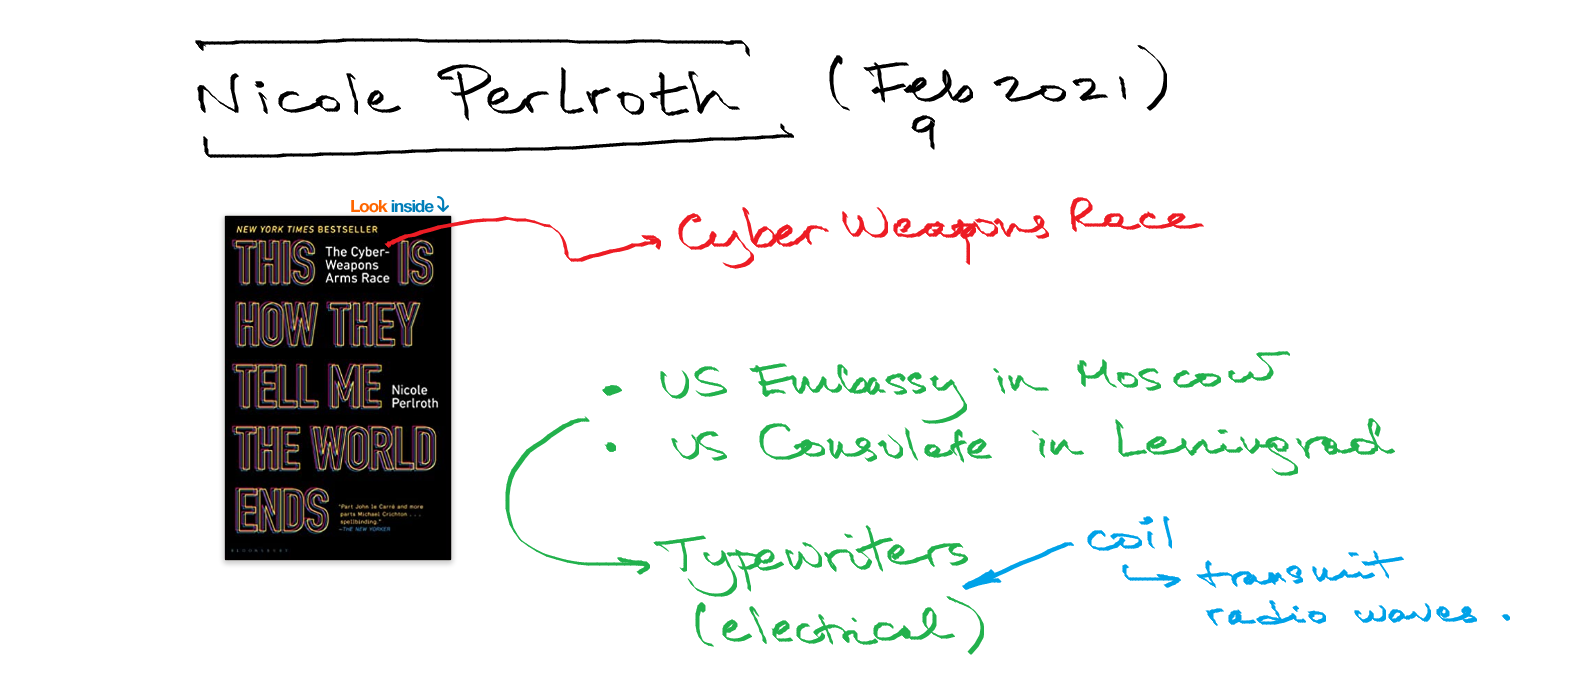 Nicole Perlroth (Feb 2021)
9
Look inside
NEW YORK TIMES BESTSELLER
THIS IS
The Cyber-
Weapons
Arms Race
HOW THEY
TELL ME
Nicole
Perlroth
THE WORLD
ENDS
"Part John le Carré and more
parts Michael Crichton . . .
spellbinding."
—THE NEW YORKER
BLOOMSBURY
Cyber Weapons Race
• US Embassy in Moscow
• US Consulate in Leningrad
Typewriters
(electrical)
coil
transmit
radio waves.